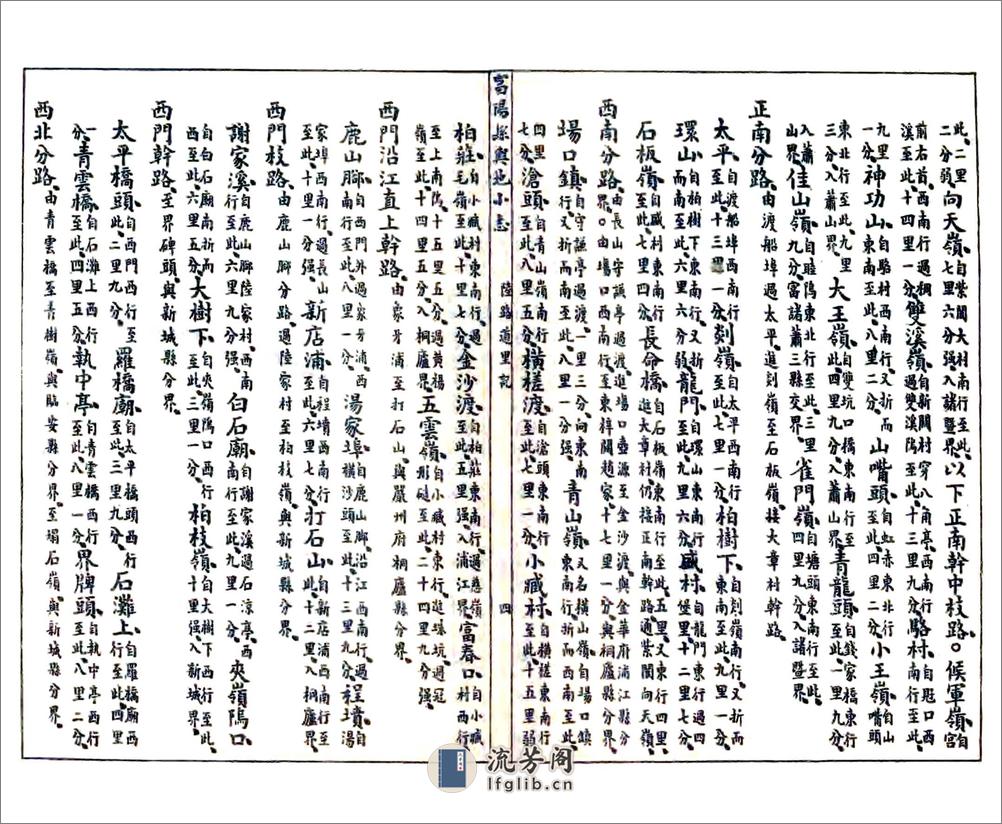 此、二里二分弱、向天嶺、自紫閬大村南行至此、七里六分強、入諸暨界、以下正南幹中枝路。候軍嶺、自宮
前右首、西南行、過桐溪至此、雙溪嶺、自新關村穿八角亭西南行、過雙溪隖至此、十三里九分、駱村、自口西南行至此、
九里一分、神功山、自駱村西南行、又折而東南至此、八里二分、山嘴頭、自虹赤東北行至此、四里二分、小王嶺、嘴頭
東北行至此、九里三分、入蕭山界、大王嶺、自雙坑口橋東南行至此、四里九分、入蕭山界、青龍頭、自錢家橋東行至此、一里
入蕭山界、佳山嶺、自睦隖東北行至此、三里九分、富諸蕭三縣交界、雀門嶺、自塘頭東南行至此、四里九分、入諸暨界、
正南分路、由渡船埠過太平、進剡嶺至石板嶺、接大章村幹路、
太平、自渡船埠西南行至此、十三里一分、剡嶺、自太平西南行至此、七里一分、柏樹下、自剡嶺南行、又折而
環山、自柏樹下東南行、又折而南至此、六里六分弱、龍門、自環山東南行至此、九里六分、盛村、自龍門東行、過四堡里、十二里七分、
石板嶺、自盛村東南行至此、四里七分、長命橋、自石板嶺東南行至此、五里、又東行四里進大章村、仍接正南幹路、通紫閬向天嶺、
西南分路、由長山守謙亭過渡、進場口壺源至金沙渡、與金華府浦江縣分界。由場口西南行、至東梓關趙家、十七里一分、與桐廬分界、
場口鎮、自守謙亭過渡、一里三分、向東南行、又折而南至此、八里一分、青山嶺、又名橫山嶺、自場口鎮東南行、折而西南至此、
四里七分、滄頭、自青山嶺南行至此、八里五分、橫槎渡、自滄頭東南行至此、七里一分、小臧村、自橫槎東南行至此、十五里弱、
柏莊、自小臧村東南行、過毛嶺至此、十里七分、金沙渡、自柏莊東南行、過慈嶺至此、五里強、入浦江界、富春口、自小臧村西行
至上南隖、十五里五分、過黃楊嶺至此、十四里五分、入桐廬界、五雲嶺、自小臧村東行、進珠坑、過冠形磋至此、二十四里九分強、
西門沿江直上幹路、由象牙浦至打石山、與嚴州府桐廬縣分界、
鹿山腳、自西門外過象牙浦、西南行至此、八里一分、湯家埠、自鹿山腳沿江西南行、過橫沙頭至此、十三里九分、程墳、自湯
家埠西南行、過長山至此、十里一分強、新店浦、自程墳西南行至此、六里七分、打石山、自新店浦西南行至此、十三里九分、入桐廬界、
西門枝路、由鹿山腳分路、過陸家村至柏枝嶺、與新城縣分界、
謝家溪、自鹿山腳陸家村西南行至此、六里九分強、白石廟、自謝家溪過石涼亭、西南行至此、九里一分、夾嶺隖口、
自白石廟南折而西至此、六里九分強、大樹下、自夾嶺隖口西行至此、三里一分、柏枝嶺、自大樹下西行至此、十里強、入新城界、
西門幹路、至界碑頭、與新城縣分界、
太平橋頭、自西門西行至此、二里九分、羅橋廟、自太平橋頭西行至此、三里九分、石灘上、自羅橋廟西行至此、四里
一分、青雲橋、自石灘上西行至此、四里五分、執中亭、自青雲橋西行至此、八里一分、界牌頭、自執中亭西行至此、八里二分、
西北分路、由青雲橋至青樹嶺、與臨安縣分界、至塌石嶺、與新城縣分界、
富陽縣輿地小志
陸路道里記
四
流芳阁
lfglib.cn